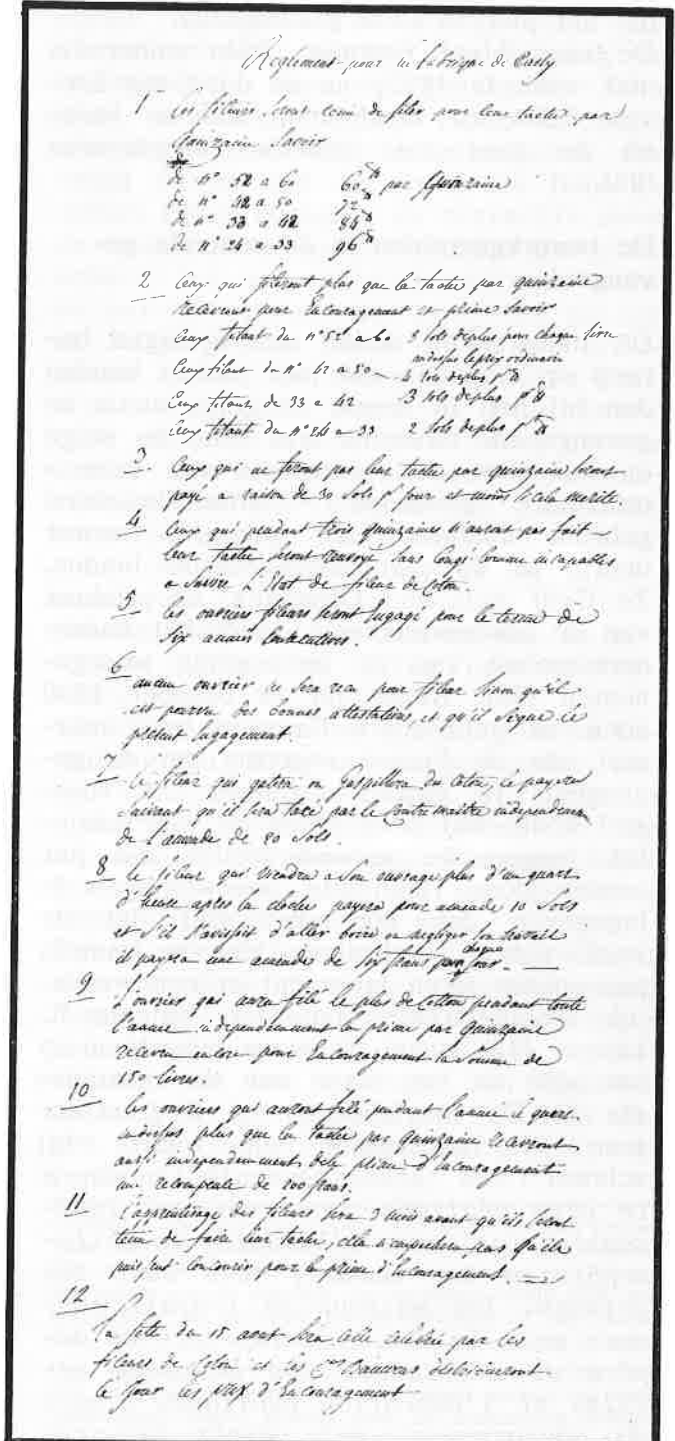 Reglement pour la fabrique de Passy
1 Les fileurs seront tenu de filer pour leur tache par
Quinzaine Savoir
de n° 52 a 60 60 lb par Quinzaine
de n° 42 a 50 72 lb
de n° 33 a 42 84 lb
de n° 24 a 33 96 lb
2 Ceux qui fileront plus que la tache par quinzaine
recevront pour Encouragement et prime Savoir
Ceux filant du n° 52 a 60 5 sols deplus pour chaque livre
audessus le prix ordinaire
Ceux filant du n° 42 a 50 4 sols deplus pr lb
Ceux filants de 33 a 42 3 sols deplus pr lb
Ceux filant du n° 24 a 33 2 sols deplus pr lb
3 Ceux qui ne feront pas leur tache par quinzaine seront
payé a raison de 30 Sols pr jour et moins si cela merite
4 Ceux qui pendant trois quinzaines n'auront pas fait
leur tache seront renvoyé sans Congé comme incapables
a Suivre l'Etat de fileur de Coton
5 les ouvriers fileurs seront Engagé pour le terme de
Six années Consecutives.
6 aucun ouvrier ne sera recu pour fileur Sinon qu'il
est pourvu des bonnes attestations, et qu'il Signe le
present Engagement.
7 le fileur qui gatera ou gaspillera du Coton, le payera
Suivant qu'il sera taxé par le Contre maitre independemt
de l'amende de 20 Sols.
8 le fileur qui viendra a Son ouvrage plus d'un quart
d'heure apres la cloche payera pour amende 10 Sols
et s'il s'avisoit d'aller boire ou negliger son travail
il payera une amende de Six frans par chaque jour.
9 L'ouvrier qui aura filé le plus de Cotton pendant toute
l'année independemment la prime par Quinzaine
recevra encore pour Encouragement la Somme de
150 livres.
10 les ouvriers qui auront filé pendant l'année le quart
audessus plus que la tache par quinzaine recevront
aussi independemment de la prime d'Encouragement
une recompense de 200 frans.
11 l'apprentissage des fileurs sera 3 mois avant qu'ils seront
tenu de faire leur tache, elle n'empechera pas qu'ils
puissent Concourir pour la prime d'Encouragement.
12
La fete du 15 aout sera celle celebrée par les
fileurs de Coton et les Cens Bauwens distribueront
ce Jour les prix d'Encouragement